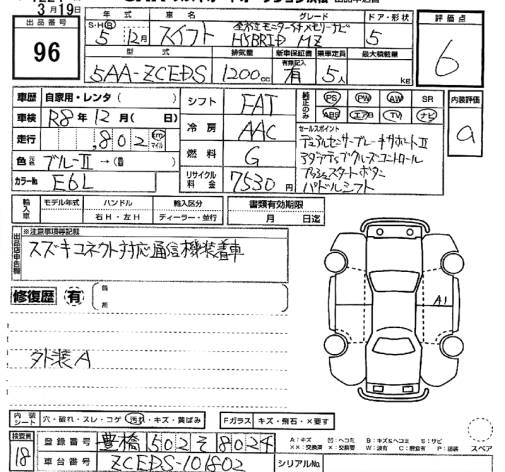 3月19日
出品番号
96
年式 車名 グレード ドア・形状
S・H(R) 5年 12月 スイフト 全方位モニター付メモリーナビ HYBRID MZ 5
型式 排気量 新車保証書 乗車定員 最大積載量
5AA-ZCEDS 1200cc 有無記入 有 5人 kg
評価点
6
車歴 自家用・レンタ( )
車検 R8年12月( 日)
走行 ,802 km マイル
色 ブルーⅡ→( )
カラーNo. E6L
シフト FAT
冷房 AAC
燃料 G
リサイクル料金 7530円
純正のみ PS PW AW SR
ABS エアB TV ナビ
内装評価
a
セールスポイント
デュアルセンサーブレーキサポートⅡ
アダプティブクルーズコントロール
プッシュスタートボタン
パドルシフト
輸入車 モデル年式 ハンドル 輸入区分 書類有効期限
右H・左H ディーラー・並行 月 日迄
※注意事項等記載
出品店申告欄
スズキコネクト対応通信機装着車
修復歴 有
A1
外装A
内装シート 穴・破れ・スレ・コゲ・汚れ・キズ・黄ばみ Fガラス キズ・飛石・×要す
検査員
18
登録番号 豊橋502そ8024
車台番号 ZCEDS-101802
シリアルNo.
A:キズ U:ヘコミ B:キズ&ヘコミ S:サビ
XX:交換済 X:交換要 W:波有 C:腐食有 P:塗装
スペア